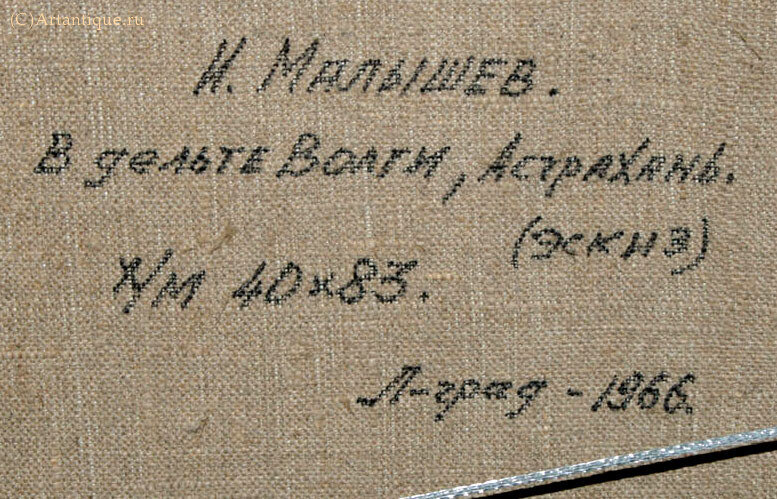 (C)Artantique.ru
И. Малышев.
В дельте Волги, Астрахань.
(эскиз)
Х/М 40×83.
Л-град - 1966.